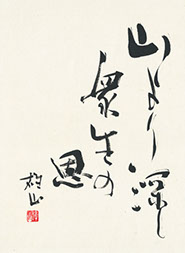 山より深し
衆生の
恩